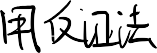 用反证法